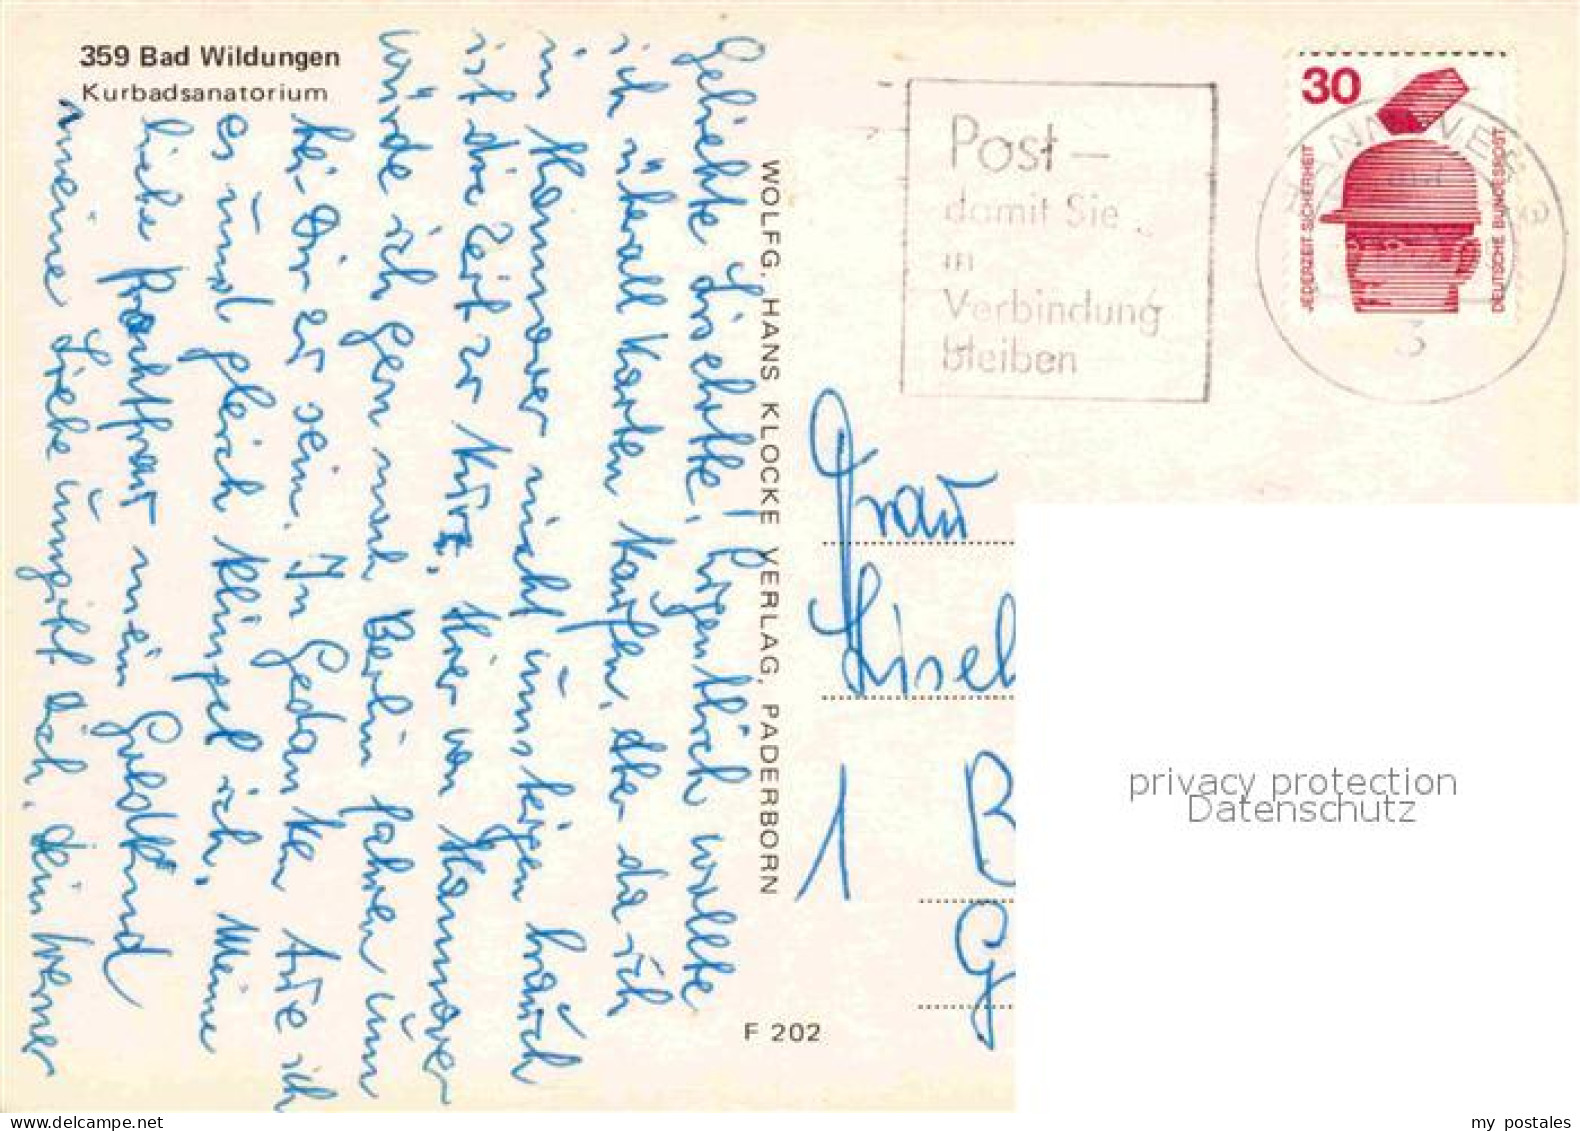 359 Bad Wildungen
Kurbadsanatorium
Geliebte Liselotte! Eigentlich wollte
ich überall Karten kaufen, aber da ich
in Hannover nicht umsteigen brauch
ist die Zeit zu kurz. Hier von Hannover
würde ich gern nach Berlin fahren um
bei Dir zu sein. In Gedanken tue ich
es und gleich klingel ich. Meine
liebe Prachtfrau mein Goldkind
meine Liebe umgibt Dich. Dein Werner
WOLFG. HANS KLOCKE VERLAG, PADERBORN
F 202
Post –
damit Sie
in
Verbindung
bleiben
30
JEDERZEIT SICHERHEIT
DEUTSCHE BUNDESPOST
HANNOVER
3
Frau
Lisel
1 B
G
privacy protection
Datenschutz
my postales
www.delcampe.net